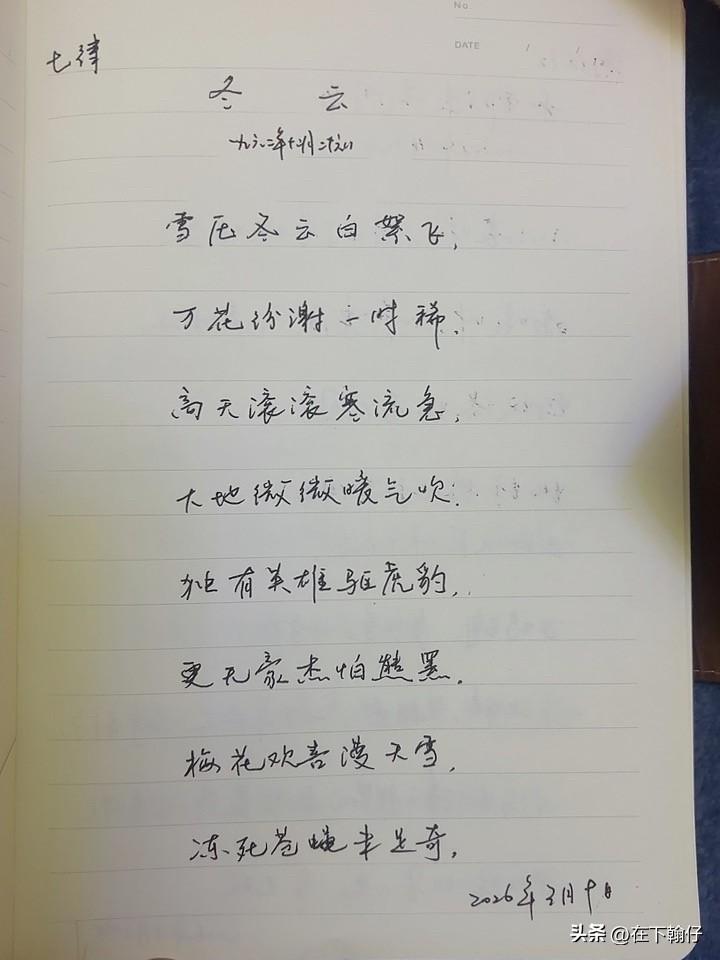 No
DATE / /
七律
冬 云
一九六二年十二月二十六日
雪压冬云白絮飞，
万花纷谢一时稀.
高天滚滚寒流急，
大地微微暖气吹.
独有英雄驱虎豹，
更无豪杰怕熊罴.
梅花欢喜漫天雪，
冻死苍蝇未足奇.
2026年3月十日
头条 @在下翰仔